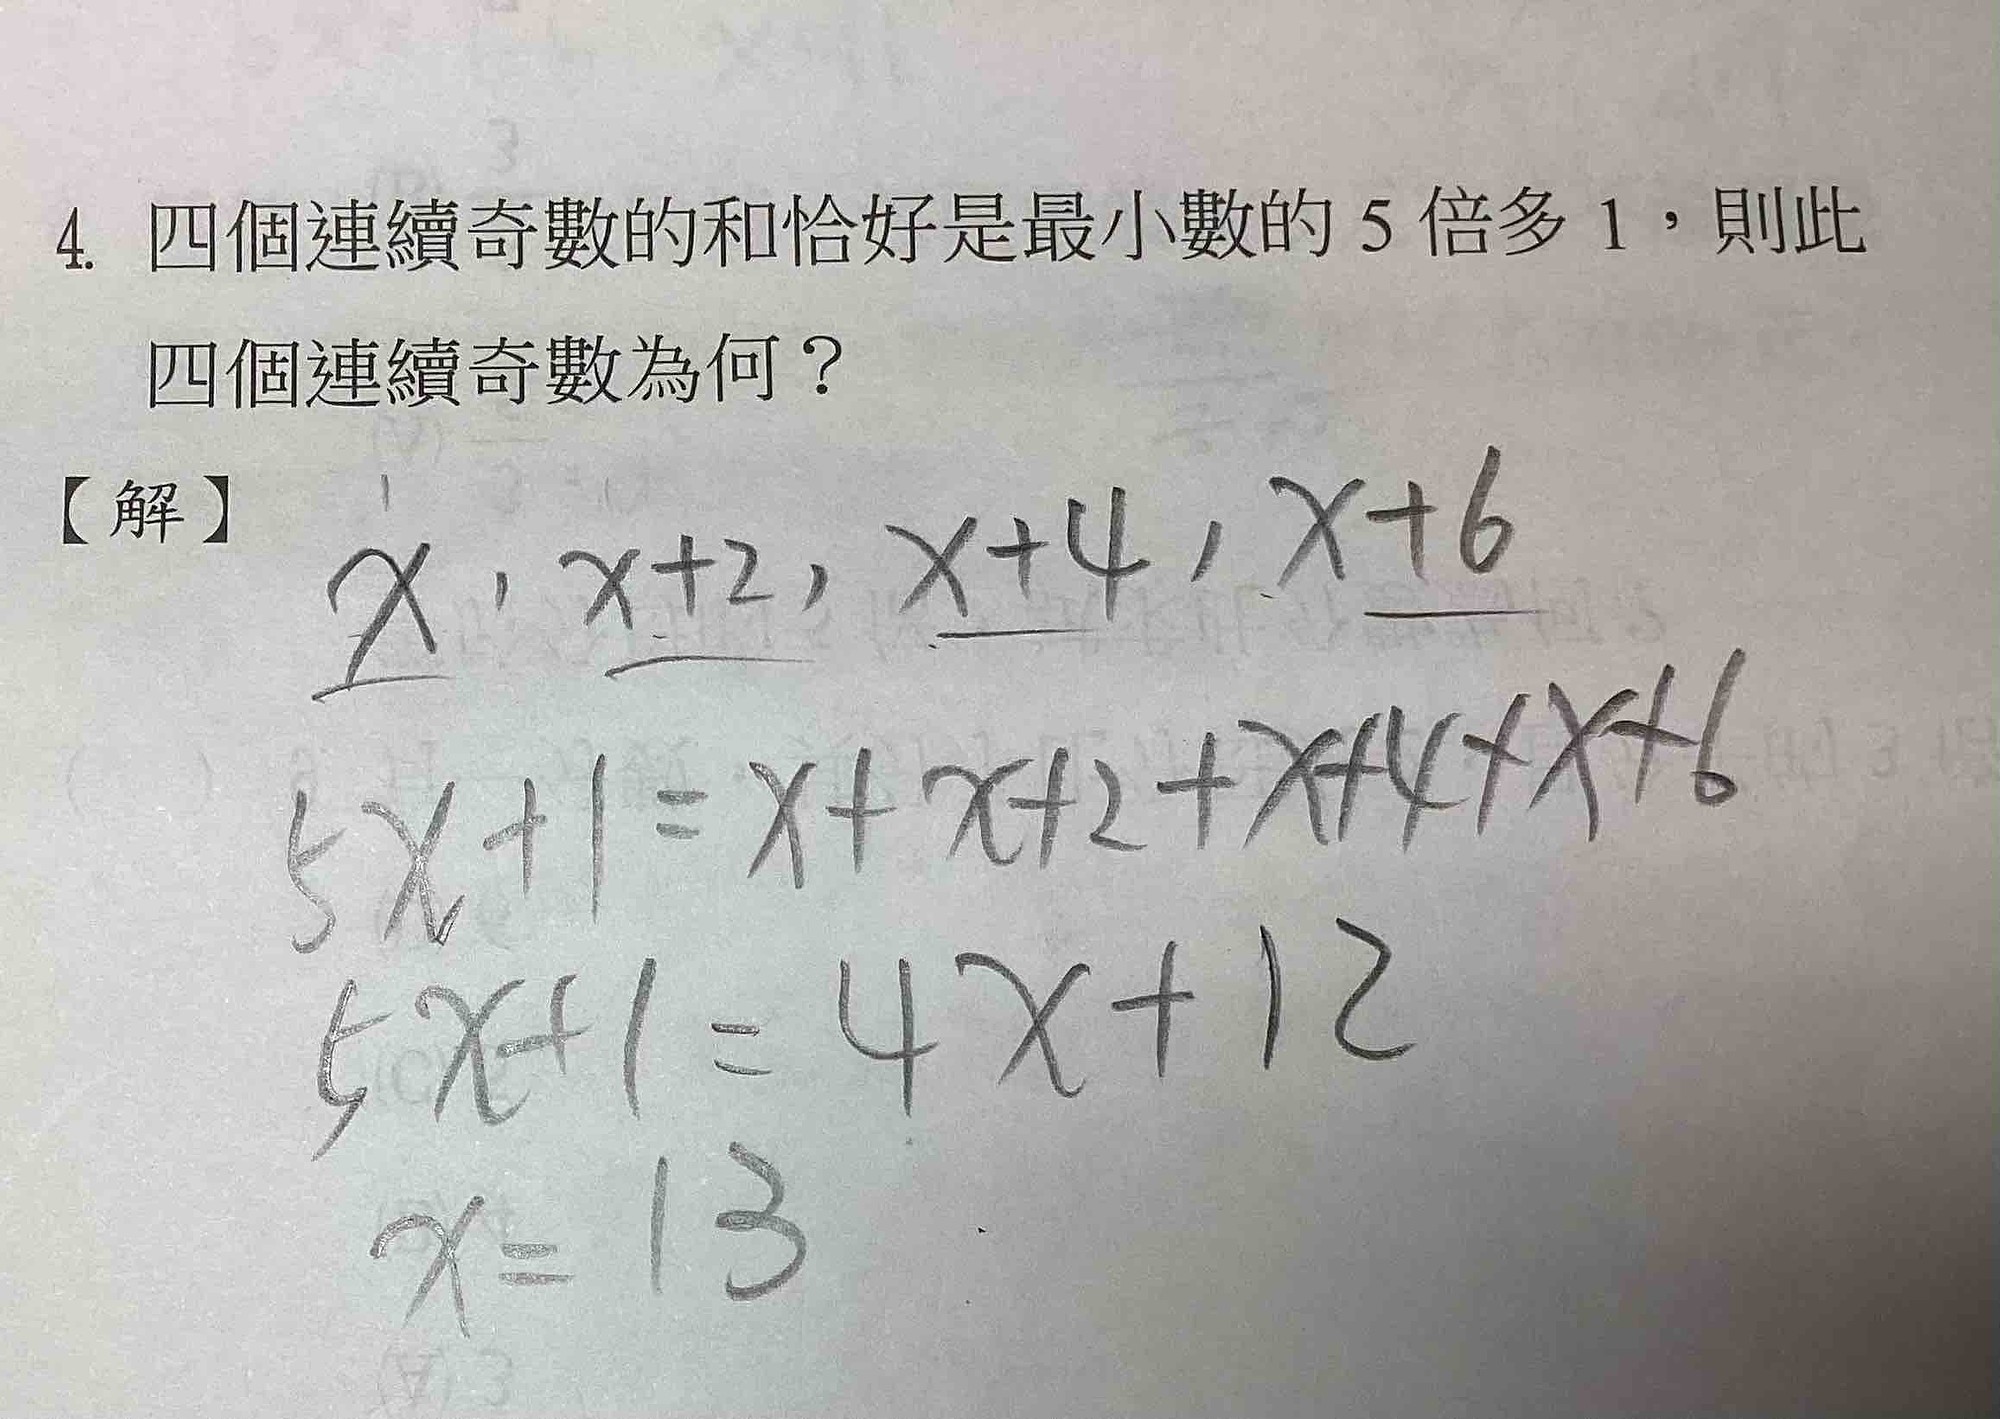 4. 四個連續奇數的和恰好是最小數的 5 倍多 1，則此
四個連續奇數為何？
【解】 x, x+2, x+4, x+6
5x+1=x+x+2+x+4+x+6
5x+1=4x+12
x=13